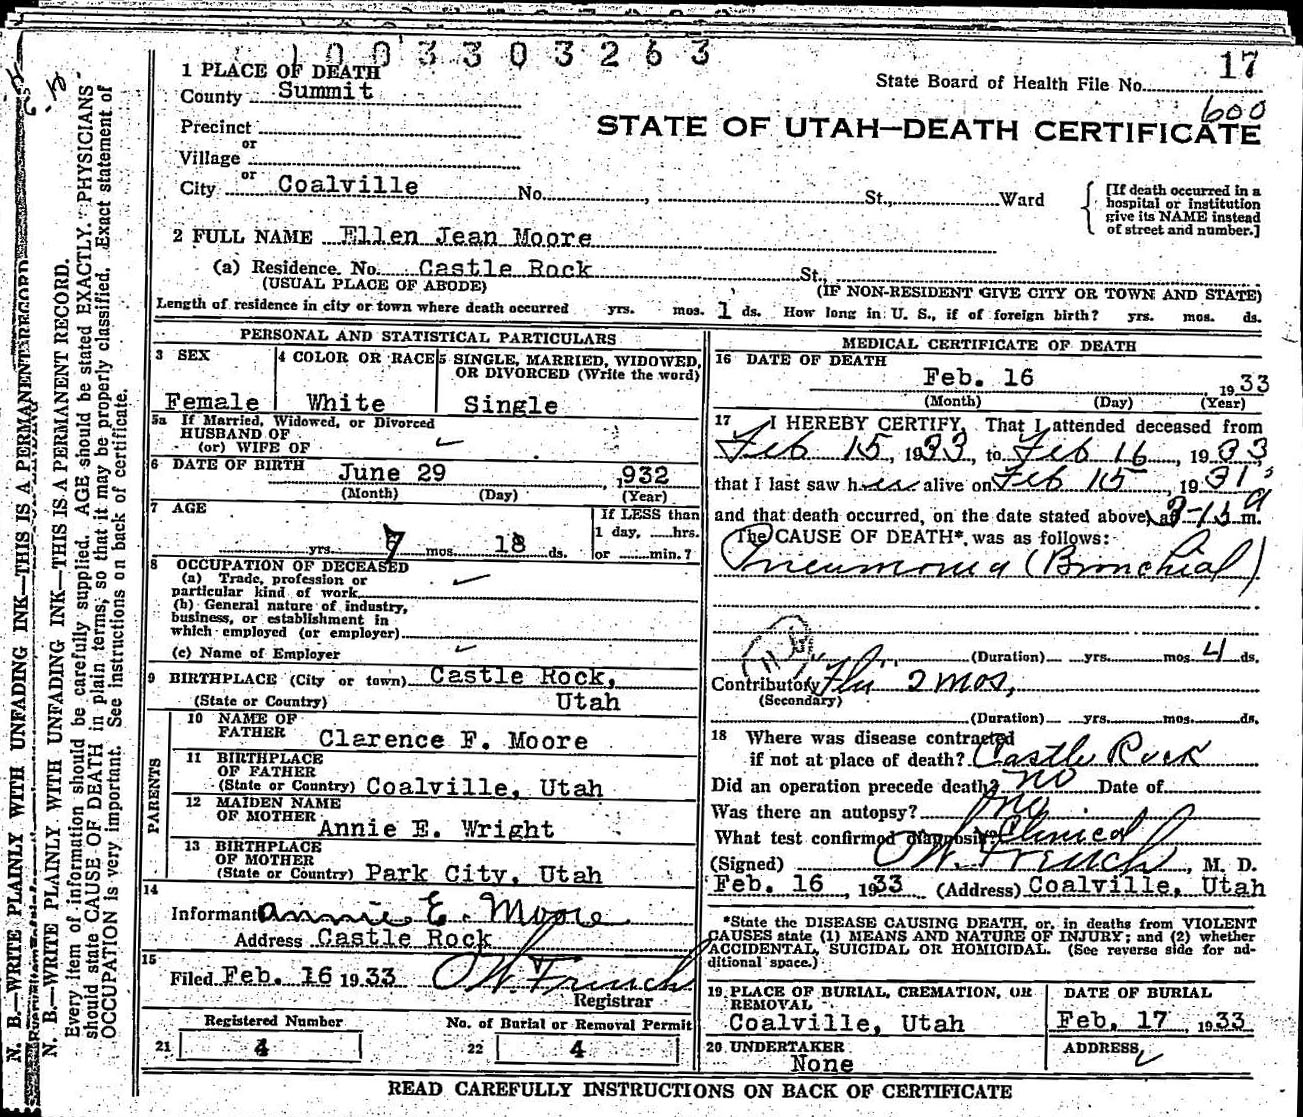 1003303263
17
1 PLACE OF DEATH
State Board of Health File No.
County Summit
600
Precinct
STATE OF UTAH—DEATH CERTIFICATE
or
Village
or
City Coalville No. , St., Ward
[If death occurred in a
hospital or institution
give its NAME instead
of street and number.]
2 FULL NAME Ellen Jean Moore
(a) Residence. No. Castle Rock St.,
(USUAL PLACE OF ABODE) (IF NON-RESIDENT GIVE CITY OR TOWN AND STATE)
Length of residence in city or town where death occurred yrs. mos. 1 ds. How long in U. S., if of foreign birth? yrs. mos. ds.
PERSONAL AND STATISTICAL PARTICULARS
3 SEX
Female
4 COLOR OR RACE
White
5 SINGLE, MARRIED, WIDOWED,
OR DIVORCED (Write the word)
Single
5a If Married, Widowed, or Divorced
HUSBAND OF
(or) WIFE OF
6 DATE OF BIRTH
June 29 , 1932
(Month) (Day) (Year)
7 AGE
yrs. 7 mos. 18 ds.
If LESS than
1 day, hrs.
or min.?
8 OCCUPATION OF DECEASED
(a) Trade, profession or
particular kind of work
(b) General nature of industry,
business, or establishment in
which employed (or employer)
(c) Name of Employer
9 BIRTHPLACE (City or town) Castle Rock,
(State or Country) Utah
PARENTS
10 NAME OF
FATHER Clarence F. Moore
11 BIRTHPLACE
OF FATHER
(State or Country) Coalville, Utah
12 MAIDEN NAME
OF MOTHER Annie E. Wright
13 BIRTHPLACE
OF MOTHER
(State or Country) Park City, Utah
14
Informant Annie E. Moore
Address Castle Rock
15
Filed Feb. 16 1933 O W. French
Registrar
Registered Number
21 4
No. of Burial or Removal Permit
22 4
MEDICAL CERTIFICATE OF DEATH
16 DATE OF DEATH
Feb. 16 1933
(Month) (Day) (Year)
17 I HEREBY CERTIFY, That I attended deceased from
Feb 15, 1933, to Feb 16, 1933,
that I last saw her alive on Feb 15, 19
and that death occurred, on the date stated above, at m.
The CAUSE OF DEATH*, was as follows:
Pneumonia (Bronchial)
(Duration) yrs. mos. 4 ds.
Contributory Flu 2 mos,
(Secondary)
(Duration) yrs. mos. ds.
18 Where was disease contracted
if not at place of death? Castle Rock
Did an operation precede death? no Date of
Was there an autopsy? no
What test confirmed diagnosis? Clinical
(Signed) O W. French, M. D.
Feb. 16, 1933 (Address) Coalville, Utah
*State the DISEASE CAUSING DEATH, or, in deaths from VIOLENT
CAUSES state (1) MEANS AND NATURE OF INJURY; and (2) whether
ACCIDENTAL, SUICIDAL OR HOMICIDAL. (See reverse side for ad-
ditional space.)
19 PLACE OF BURIAL, CREMATION, OR
REMOVAL
Coalville, Utah
DATE OF BURIAL
Feb. 17, 1933
20 UNDERTAKER
None
ADDRESS
READ CAREFULLY INSTRUCTIONS ON BACK OF CERTIFICATE
N. B.—WRITE PLAINLY WITH UNFADING INK—THIS IS A PERMANENT RECORD
N. B.—WRITE PLAINLY WITH UNFADING INK—THIS IS A PERMANENT RECORD.
Every item of information should be carefully supplied. AGE should be stated EXACTLY. PHYSICIANS
should state CAUSE OF DEATH in plain terms, so that it may be properly classified. Exact statement of
OCCUPATION is very important. See instructions on back of certificate.